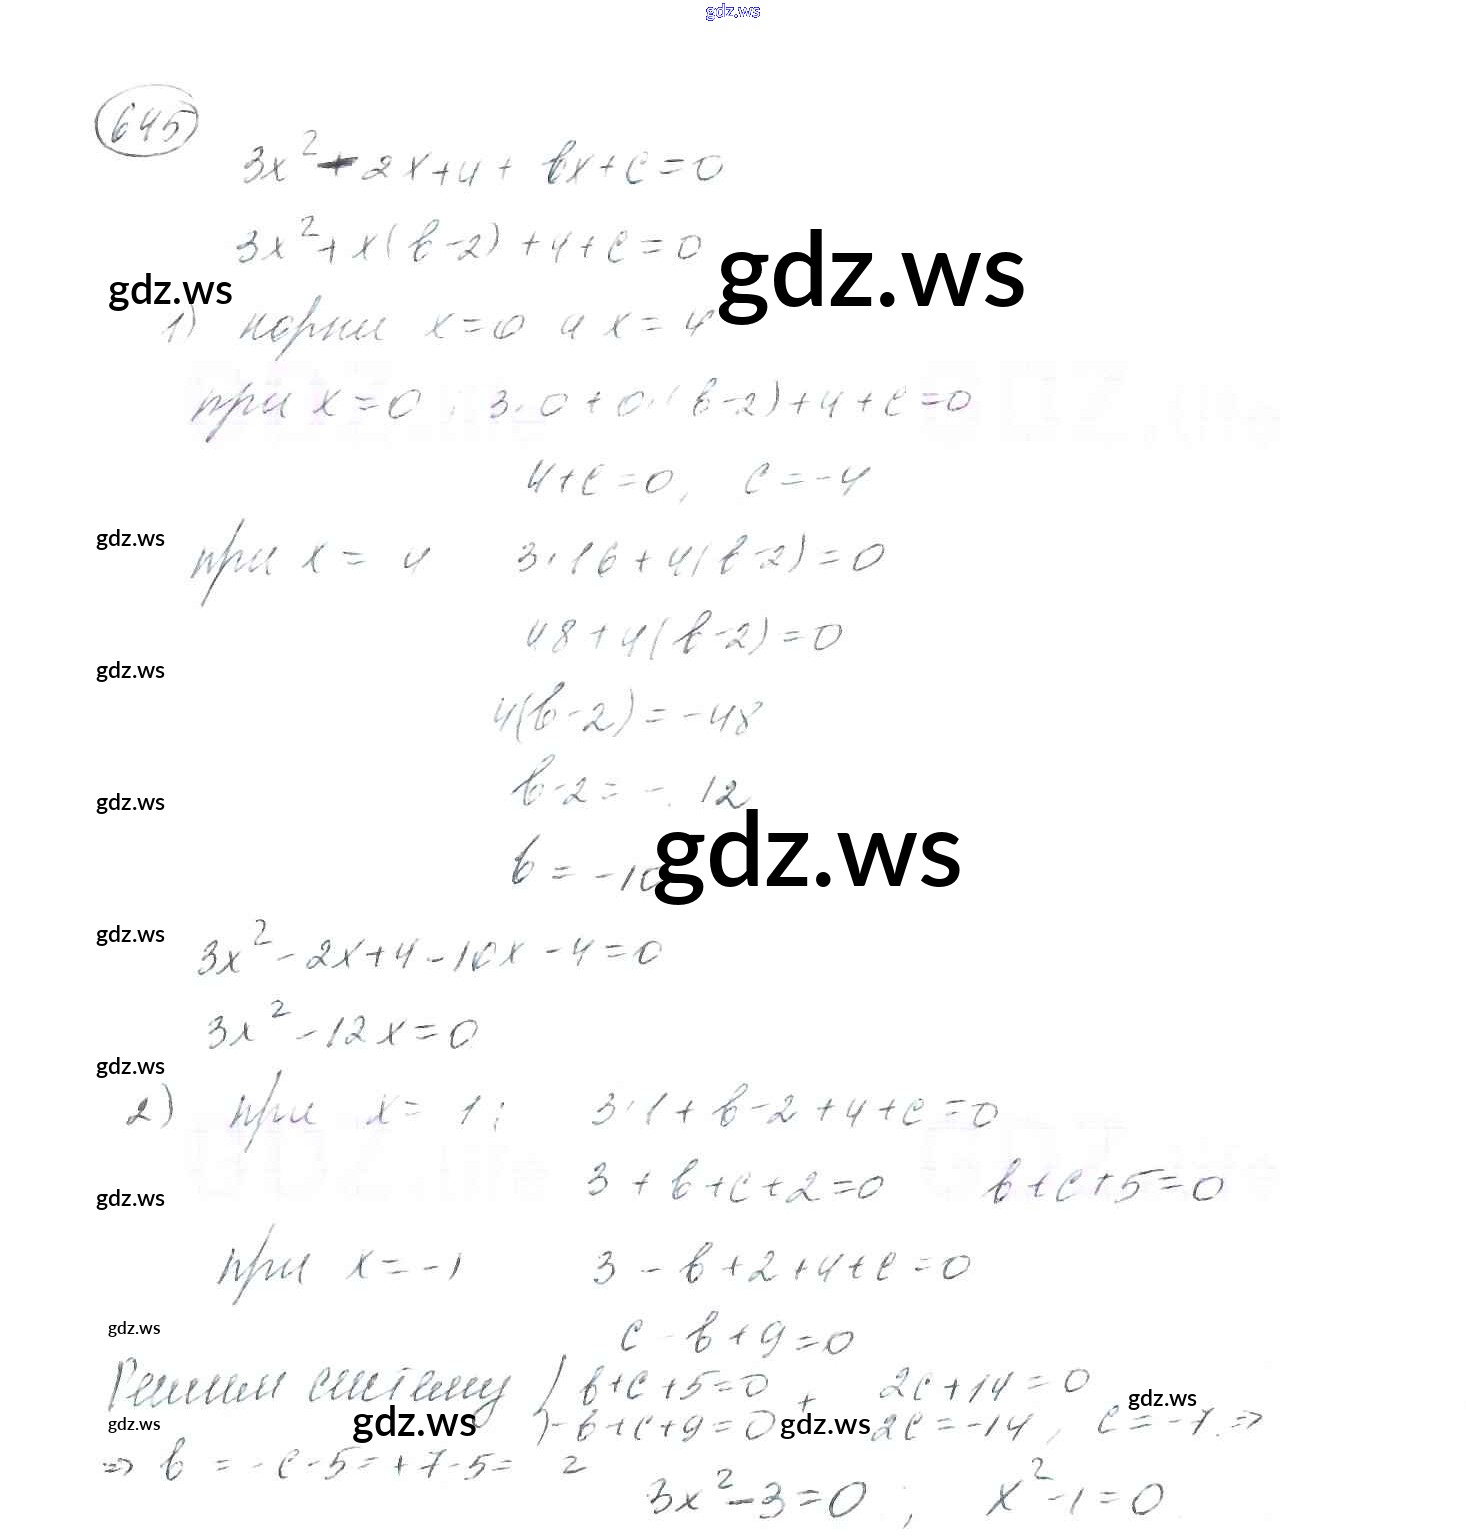 gdz.ws
645
3x² - 2x + 4 + bx + c = 0
3x² + x(b-2) + 4 + c = 0
gdz.ws
gdz.ws
1) корни x = 0 и x = 4
при x = 0 : 3·0 + 0·(b-2) + 4 + c = 0
4 + c = 0, c = -4
gdz.ws
при x = 4 3·16 + 4(b-2) = 0
48 + 4(b-2) = 0
gdz.ws
4(b-2) = -48
gdz.ws
b-2 = -12
gdz.ws
b = -10
gdz.ws
3x² - 2x + 4 - 10x - 4 = 0
3x² - 12x = 0
gdz.ws
2) при x = 1 : 3·1 + b - 2 + 4 + c = 0
gdz.ws
3 + b + c + 2 = 0 b + c + 5 = 0
при x = -1 3 - b + 2 + 4 + c = 0
gdz.ws
c - b + 9 = 0
Решим систему { b + c + 5 = 0 + 2c + 14 = 0
gdz.ws
gdz.ws
gdz.ws
-b + c + 9 = 0 2c = -14, c = -7 ⇒
gdz.ws
⇒ b = -c - 5 = +7 - 5 = 2
3x² - 3 = 0 ; x² - 1 = 0